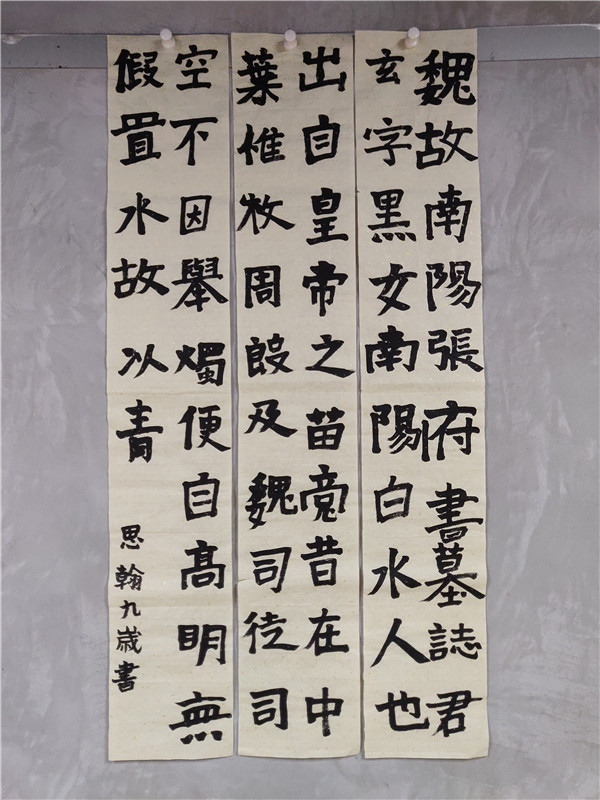 魏故南陽張府書墓誌君
玄字黑女南陽白水人也
出自皇帝之苗裔昔在中
葉惟牧周殷及魏司徒司
空不因舉燭便自髙明無
假置水故以青
思翰九歲書